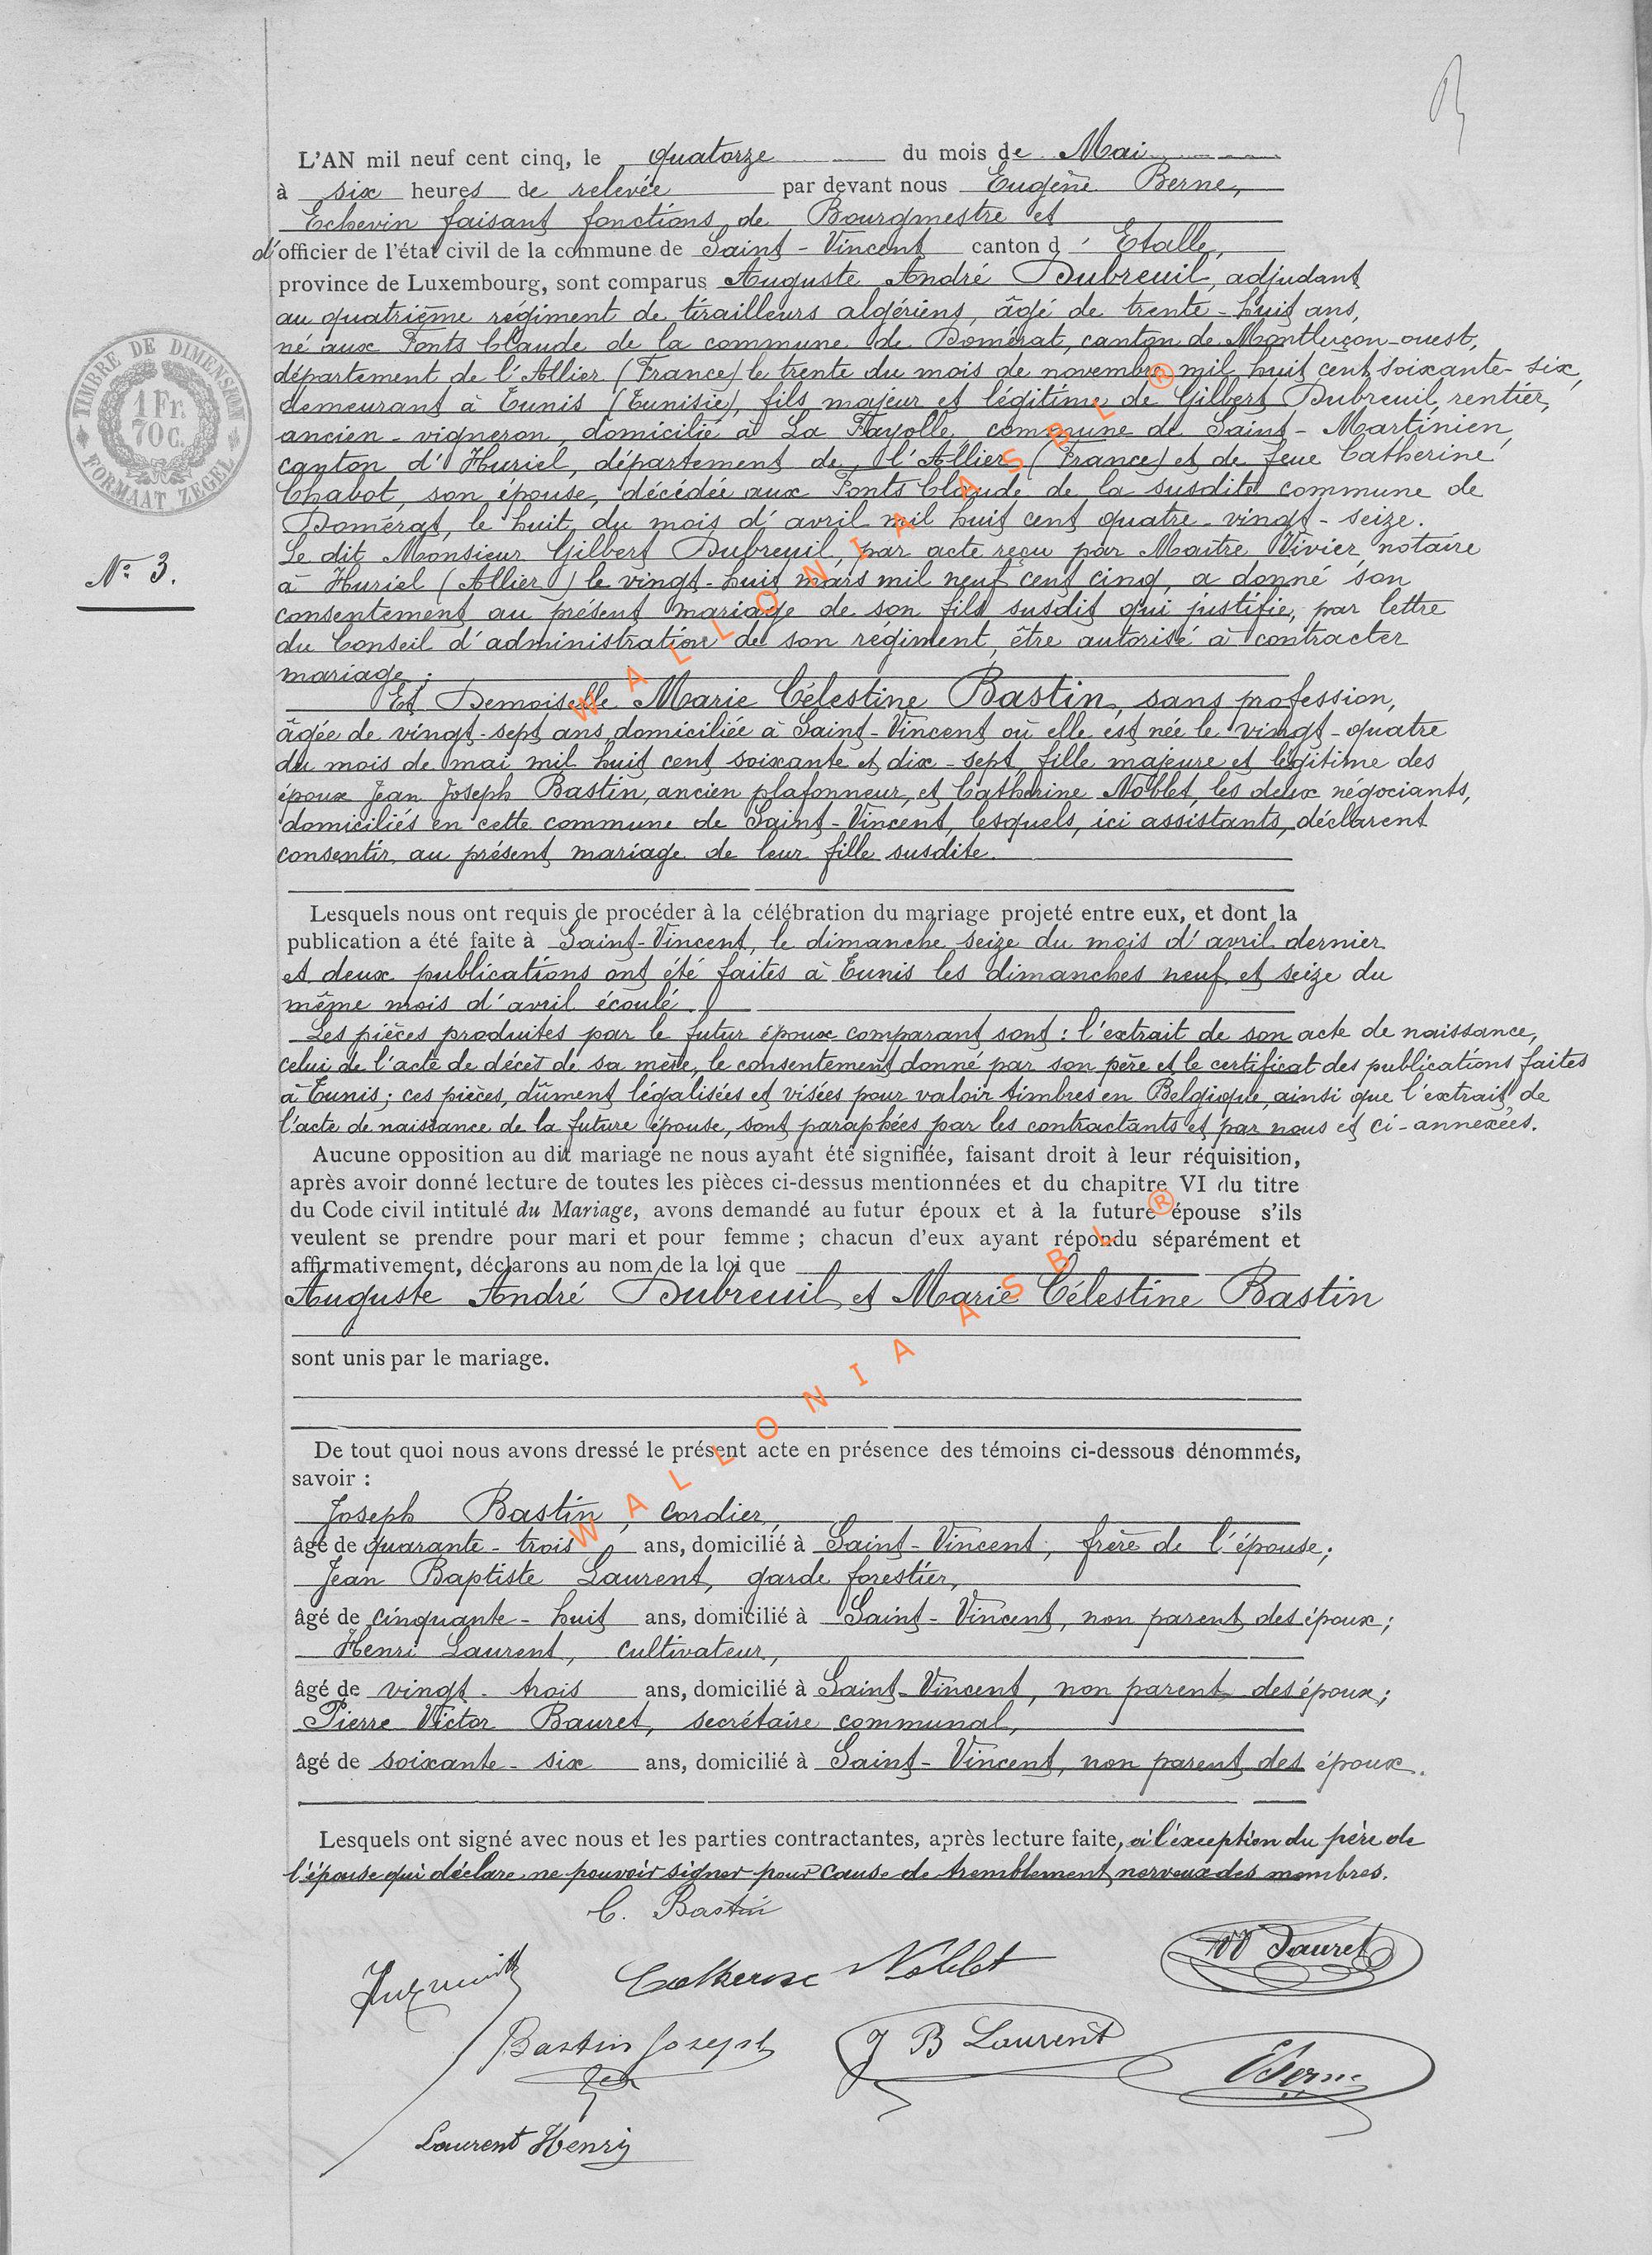 L'AN mil neuf cent cinq, le quatorze du mois de Mai
à six heures de relevée par devant nous Eugène Berne,
Echevin faisant fonctions de Bourgmestre et
d'officier de l'état civil de la commune de Saint-Vincent canton d'Etalle,
province de Luxembourg, sont comparus Auguste André Dubreuil, adjudant
au quatrième régiment de tirailleurs algériens, âgé de trente-huit ans,
né aux Fonts Claude de la commune de Domérat, canton de Montluçon-ouest,
département de l'Allier (France) le trente du mois de novembre mil huit cent soixante-six,
demeurant à Tunis (Tunisie), fils majeur et légitime de Gilbert Dubreuil, rentier,
ancien-vigneron, domicilié à La Fayolle commune de Saint-Martinien,
canton d'Huriel, département de l'Allier (France) et de feue Catherine
Chabot, son épouse, décédée aux Fonts Claude de la susdite commune de
Domérat, le huit du mois d'avril mil huit cent quatre-vingt-seize.
Le dit Monsieur Gilbert Dubreuil, par acte reçu par Maître Vivier, notaire
à Huriel (Allier) le vingt-huit mars mil neuf cent cinq, a donné son
consentement au présent mariage de son fils susdit qui justifie, par lettre
du Conseil d'administration de son régiment, être autorisé à contracter
mariage;
Et Demoiselle Marie Célestine Bastin, sans profession,
âgée de vingt-sept ans, domiciliée à Saint-Vincent où elle est née le vingt-quatre
du mois de mai mil huit cent soixante et dix-sept, fille majeure et légitime des
époux Jean Joseph Bastin, ancien plafonneur, et Catherine Noblet, les deux négociants,
domiciliés en cette commune de Saint-Vincent, lesquels, ici assistants, déclarent
consentir au présent mariage de leur fille susdite.
Lesquels nous ont requis de procéder à la célébration du mariage projeté entre eux, et dont la
publication a été faite à Saint-Vincent, le dimanche seize du mois d'avril dernier
et deux publications ont été faites à Tunis les dimanches neuf et seize du
même mois d'avril écoulé.
Les pièces produites par le futur époux comparant sont : l'extrait de son acte de naissance,
celui de l'acte de décès de sa mère, le consentement donné par son père et le certificat des publications faites
à Tunis; ces pièces, dûment légalisées et visées pour valoir timbres en Belgique, ainsi que l'extrait de
l'acte de naissance de la future épouse, sont paraphées par les contractants et par nous et ci-annexées.
Aucune opposition au dit mariage ne nous ayant été signifiée, faisant droit à leur réquisition,
après avoir donné lecture de toutes les pièces ci-dessus mentionnées et du chapitre VI du titre
du Code civil intitulé du Mariage, avons demandé au futur époux et à la future épouse s'ils
veulent se prendre pour mari et pour femme ; chacun d'eux ayant répondu séparément et
affirmativement, déclarons au nom de la loi que
Auguste André Dubreuil et Marie Célestine Bastin
sont unis par le mariage.
De tout quoi nous avons dressé le présent acte en présence des témoins ci-dessous dénommés,
savoir :
Joseph Bastin, cordier,
âgé de quarante-trois ans, domicilié à Saint-Vincent, frère de l'épouse;
Jean Baptiste Laurent, garde forestier,
âgé de cinquante-huit ans, domicilié à Saint-Vincent, non parent des époux;
Henri Laurent, cultivateur,
âgé de vingt-trois ans, domicilié à Saint-Vincent, non parent des époux;
Pierre Victor Bauret, secrétaire communal,
âgé de soixante-six ans, domicilié à Saint-Vincent, non parent des époux.
Lesquels ont signé avec nous et les parties contractantes, après lecture faite, à l'exception du père de
l'épouse qui déclare ne pouvoir signer pour cause de tremblement nerveux des membres.
C. Bastin
Catherine Noblet
Bastin Joseph
J B Laurent
E Berne
Laurent Henri
TIMBRE DE DIMENSION
1 Fr.
70 C.
FORMAAT ZEGEL
N° 3.
WALLONIA ASBL ®
WALLONIA ASBL ®